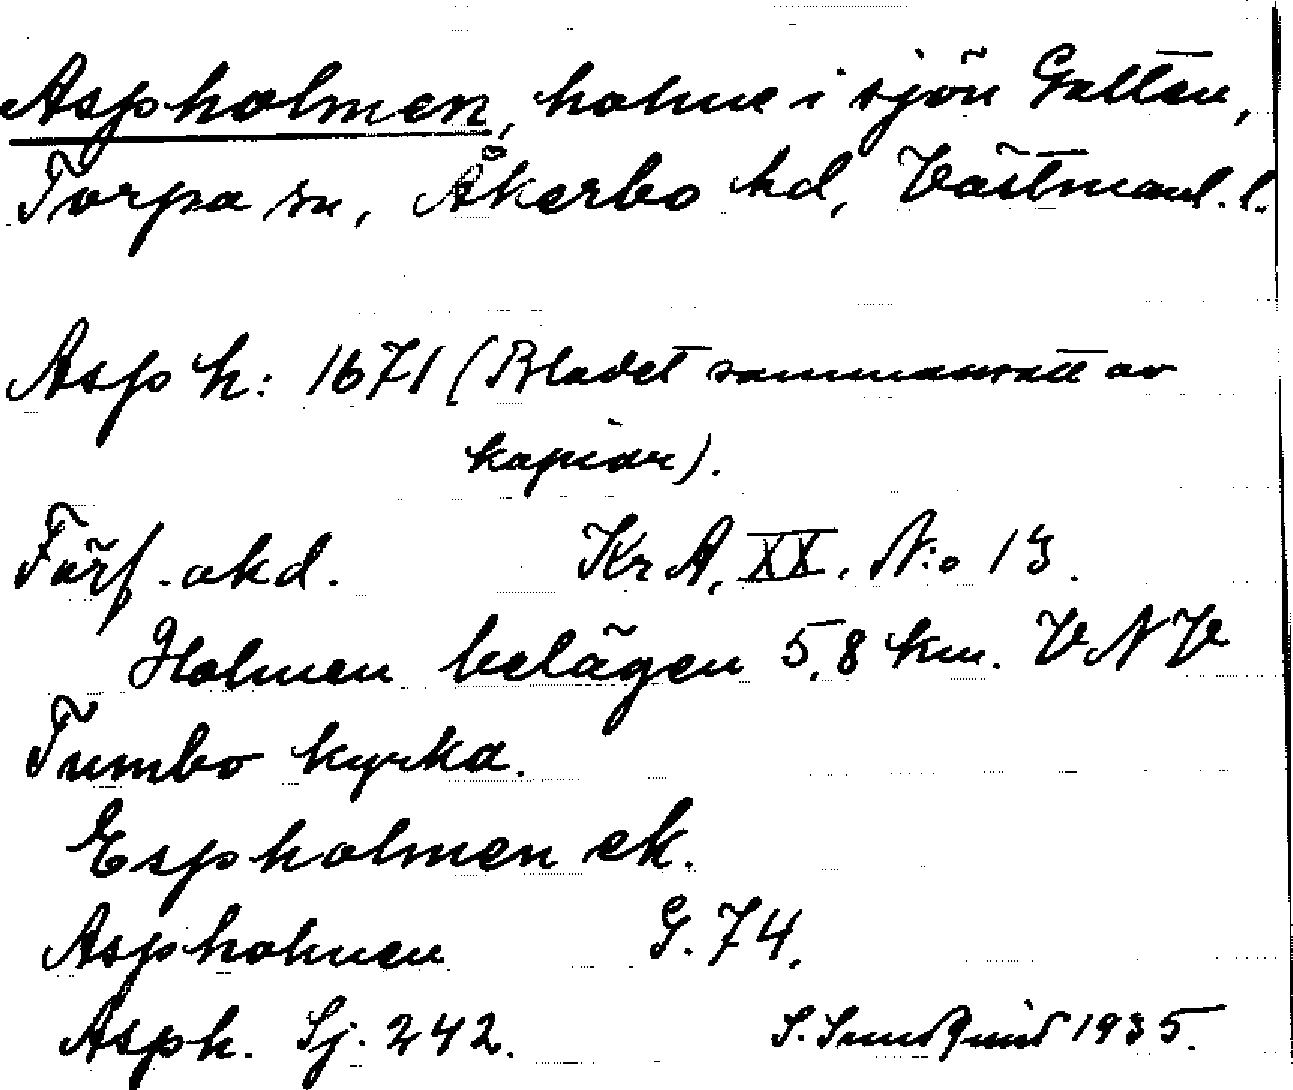 Aspholmen, holme i sjön Galten,
Torpa sn, Åkerbo hd, Västmanl. l.
Asp h: 1671 (Bladet sammansatt av
kopior).
Förf. okd. Kr A, XX. N:o 13.
Holmen belägen 5,8 km. VNV
Tumbo kyrka.
Espholmen ek.
Aspholmen G. 74.
Asph. Sj. 242. S. Sundquist 1935.